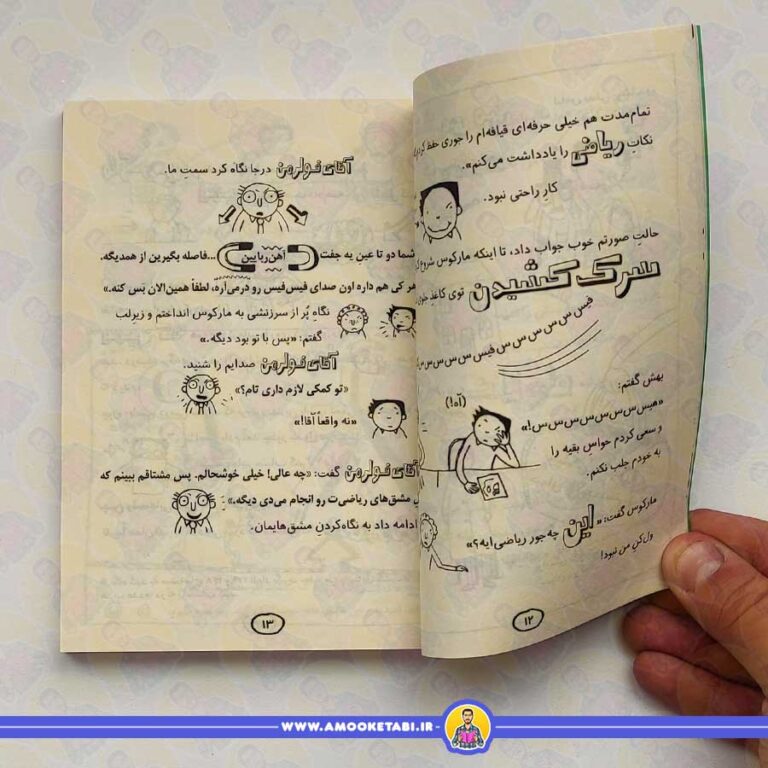 تمام‌مدت هم خیلی حرفه‌ای قیافه‌ام را جوری حفظ
نکاتِ ریاضی را یادداشت می‌کنم».
کارِ راحتی نبود.
حالتِ صورتم خوب جواب داد، تا اینکه مارکوس شروع
سرک کشیدن توی کاغذ
فیس س س س س س فیس س س س س س
بهش گفتم:
«هیس س س س س س س س!»
(آه!)
و سعی کردم حواسِ بقیه را
به خودم جلب نکنم.
مارکوس گفت: «این چه‌جور ریاضی‌ایه؟»
ول‌کنِ من نبود!
۱۲
آقای فولرمن درجا نگاه کرد سمتِ ما.
شما دو تا عین یه جفت آهن‌ربایین ...فاصله بگیرین از همدیگه.
هر کی هم داره اون صدای فیس‌فیس رو درمی‌آره، لطفاً همین‌الان بَس کنه.»
نگاهِ پُر از سرزنشی به مارکوس انداختم و زیرِلب
گفتم: «پس با تو بود دیگه.»
آقای فولرمن صدایم را شنید.
«تو کمکی لازم داری تام؟»
«نه واقعاً آقا!»
آقای فولرمن گفت: «چه عالی! خیلی خوشحالم. پس مشتاقم ببینم که
مشق‌های ریاضی‌ت رو انجام می‌دی دیگه.»
ادامه داد به نگاه‌کردنِ مشق‌هایمان.
۱۳
WWW.AMOOKETABI.IR